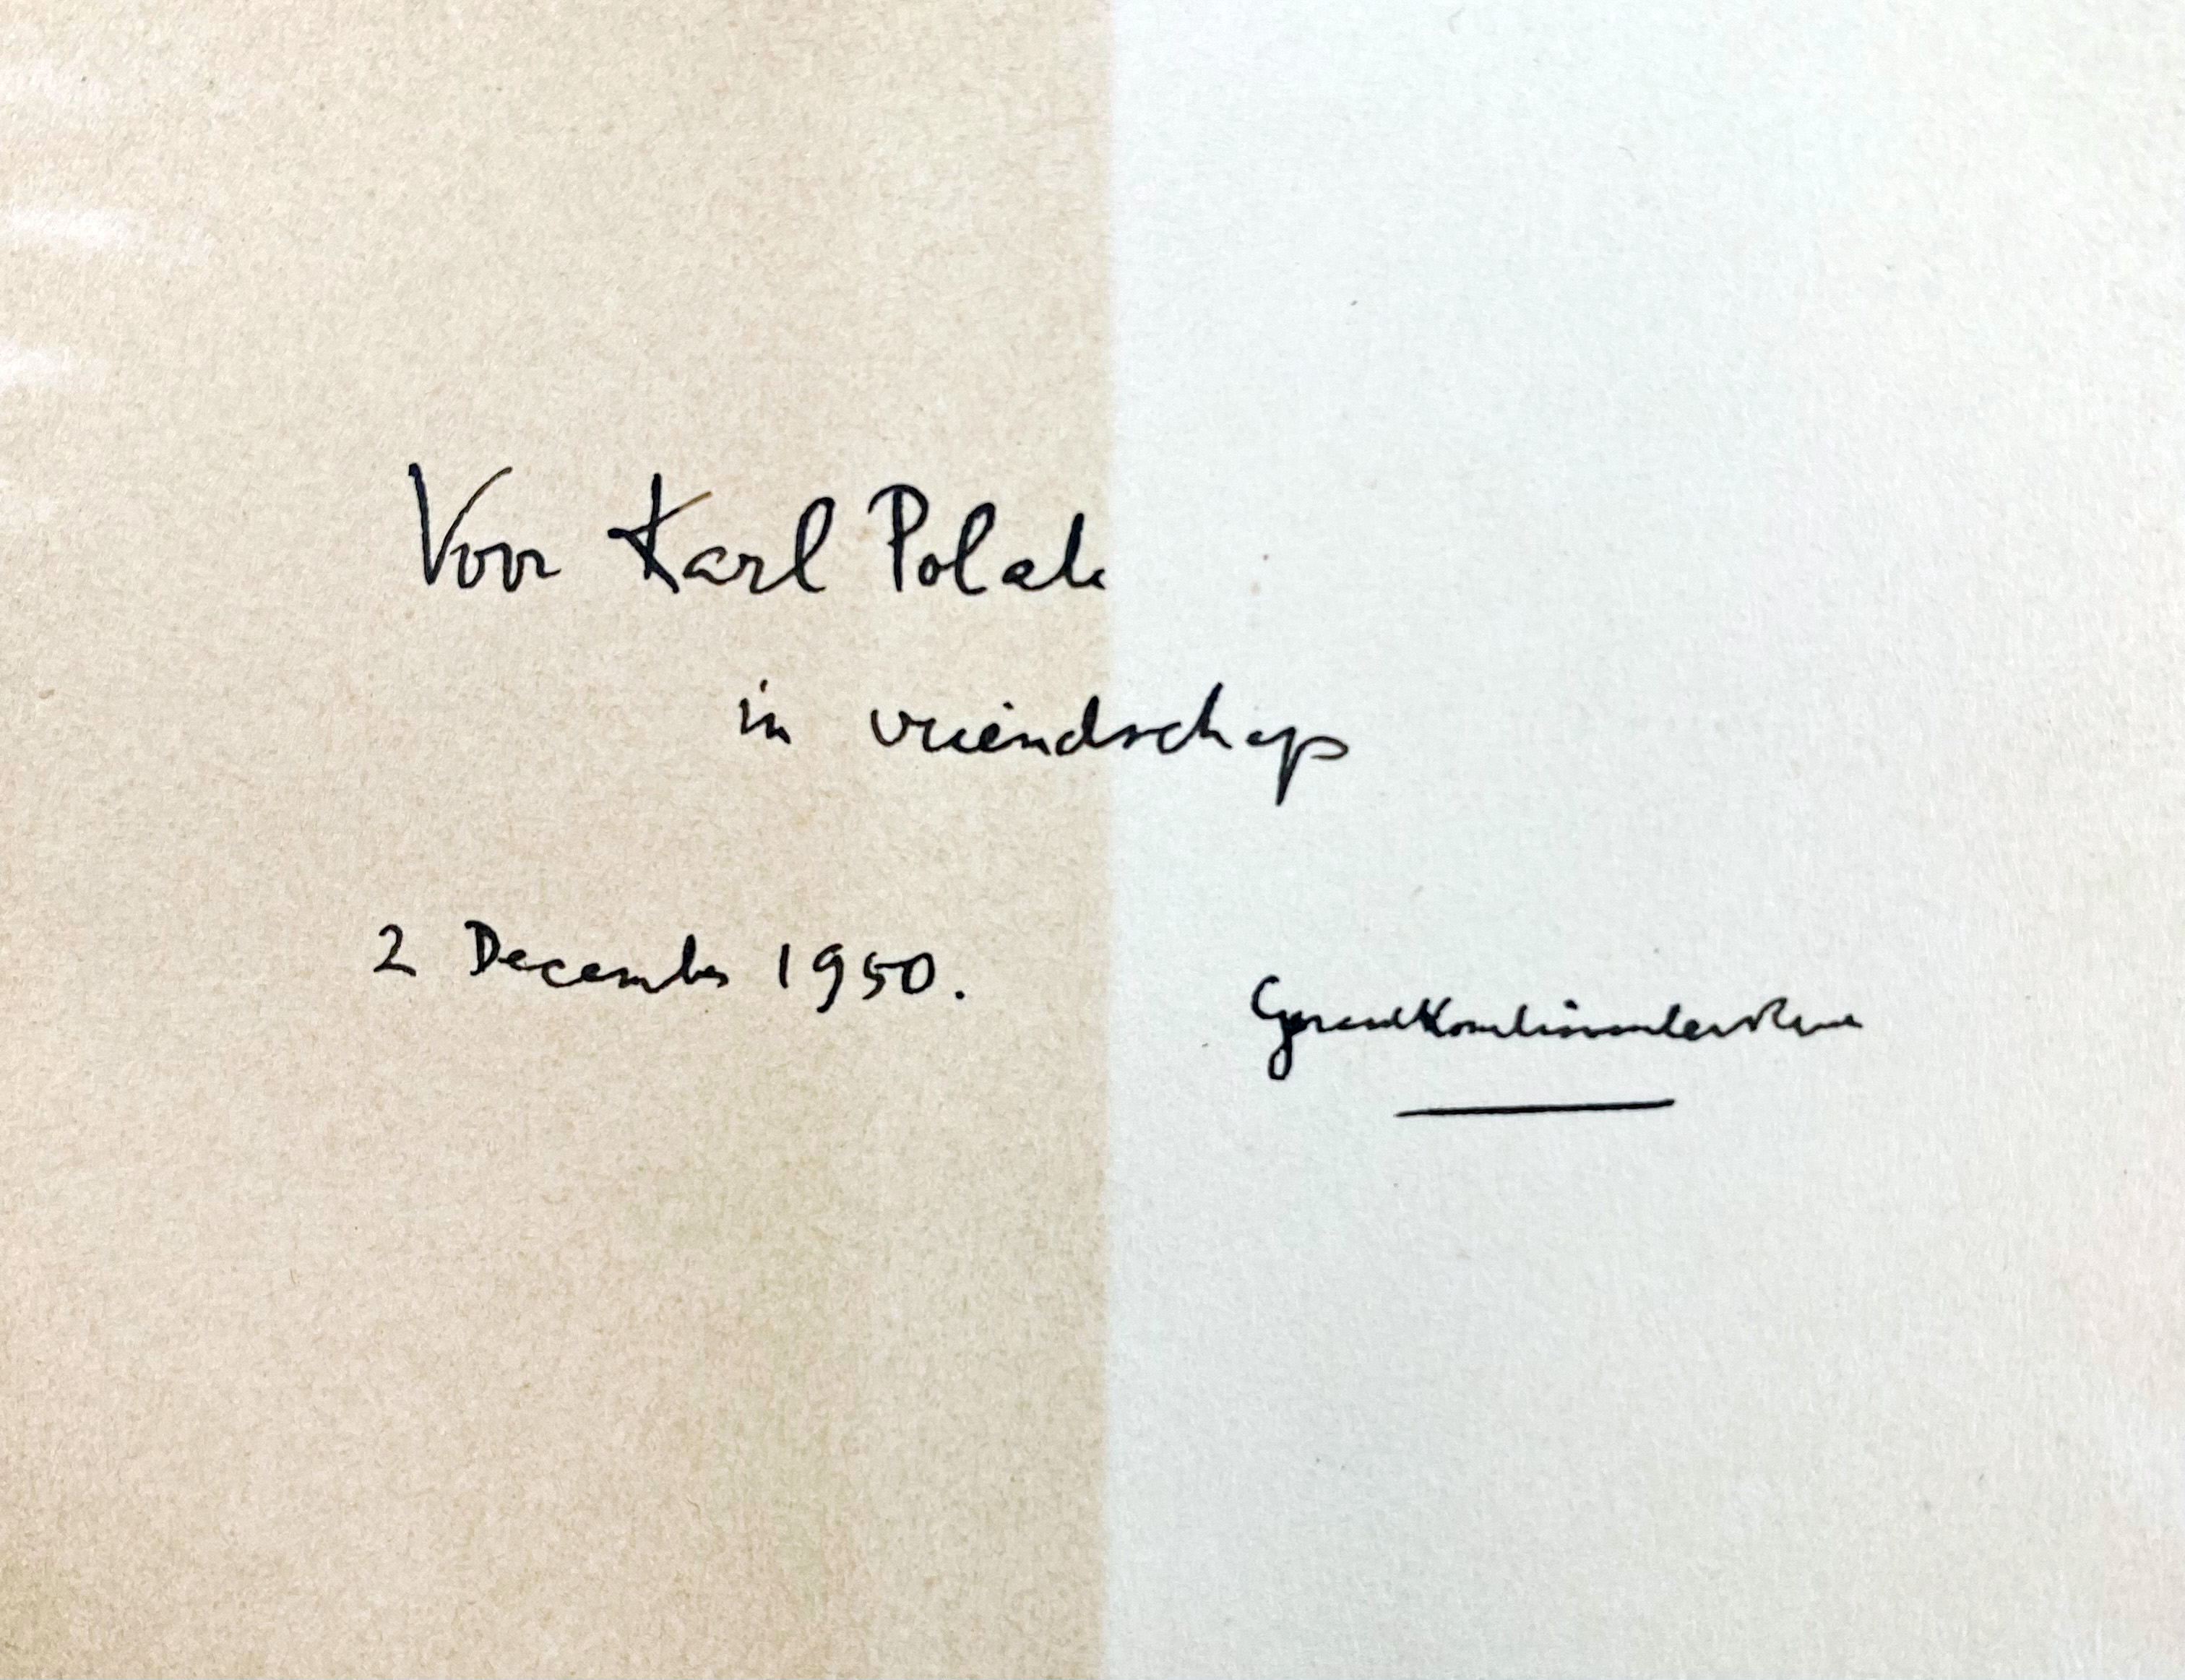 Voor Karl Polak
in vriendschap
2 December 1950.
Gerard Kornelis van het Reve